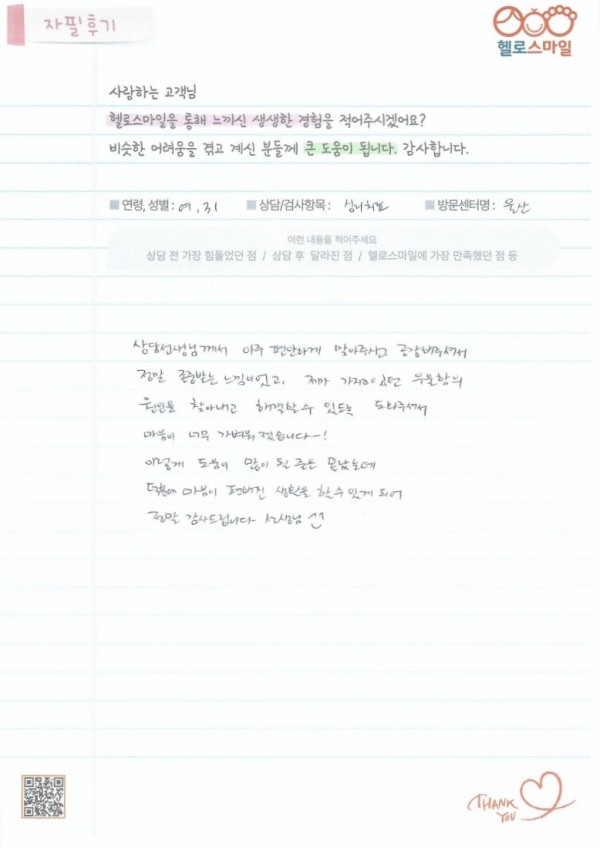 자필후기
헬로스마일
사랑하는 고객님
헬로스마일을 통해 느끼신 생생한 경험을 적어주시겠어요?
비슷한 어려움을 겪고 계신 분들께 큰 도움이 됩니다. 감사합니다.
연령, 성별 : 여, 31 상담/검사항목 : 심리치료 방문센터명 : 울산
이런 내용을 적어주세요
상담 전 가장 힘들었던 점 / 상담 후 달라진 점 / 헬로스마일에 가장 만족했던 점 등
상담선생님께서 아주 편안하게 맞아주시고 공감해주셔서
정말 존중받는 느낌이었고, 제가 가지고있던 우울함의
원인을 찾아내고 해결할 수 있도록 도와주셔서
마음이 너무 가벼워 졌습니다~!
이렇게 도움이 많이 될 줄은 몰랐는데
덕분에 마음이 편해진 생활을 할 수 있게 되어
정말 감사드립니다 선생님 ^^
THANK
YOU